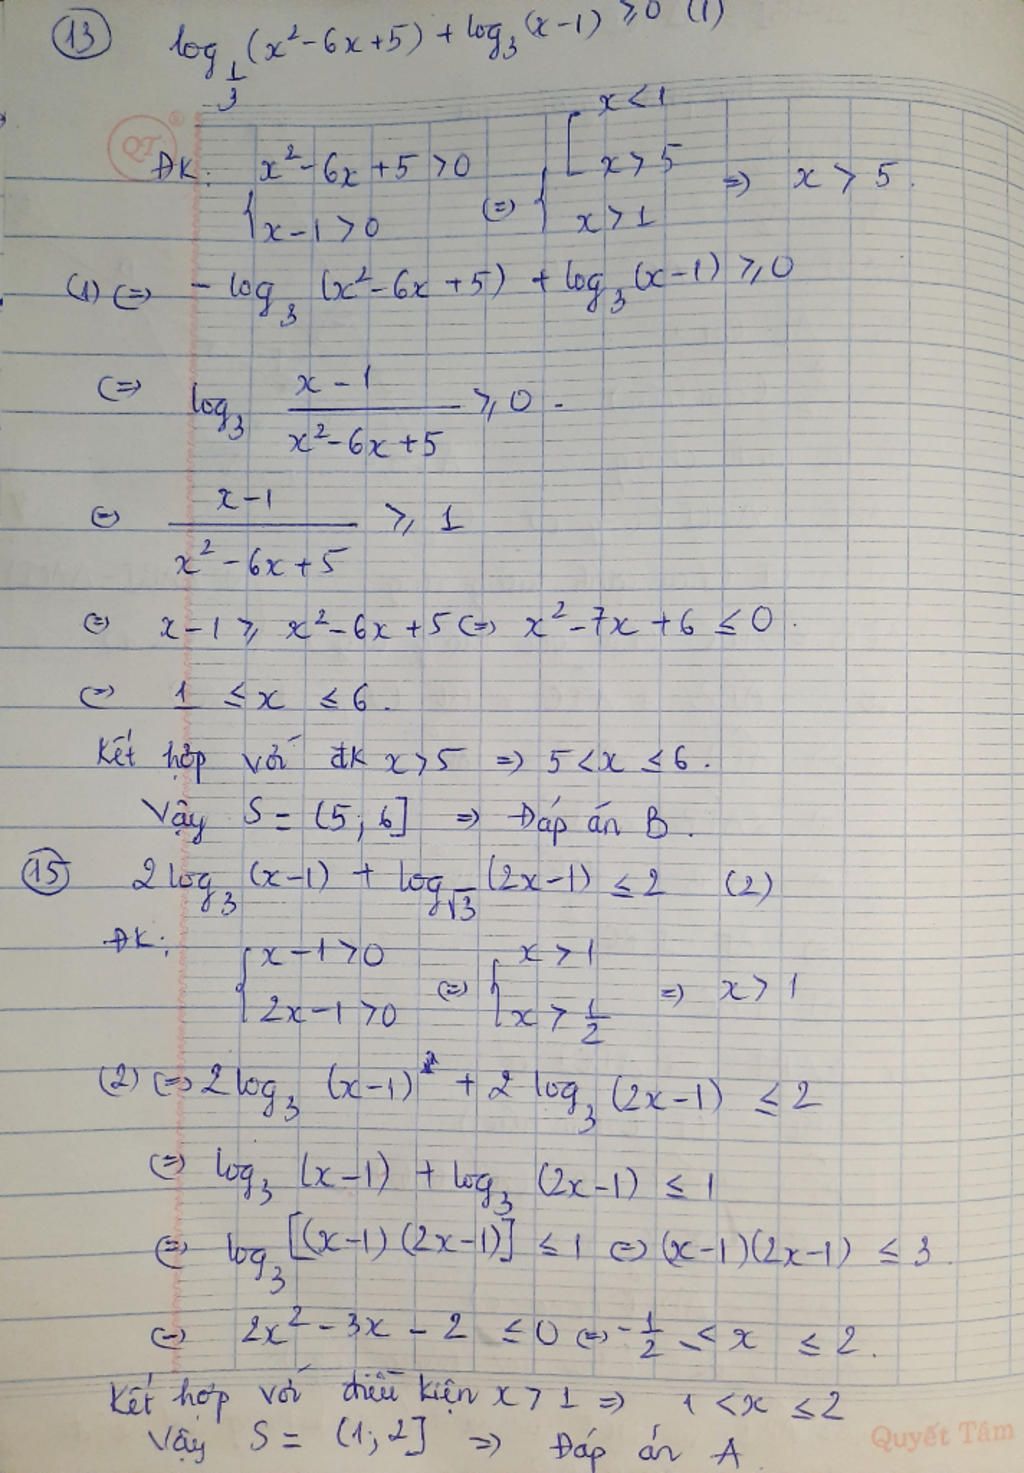 13 log_{1/3} (x² - 6x + 5) + log₃ (x - 1) ≥ 0 (1)
QT ®
ĐK: { x² - 6x + 5 > 0 ; x - 1 > 0 (=) { [ x < 1 ; x > 5 ; x > 1 => x > 5.
(1) (=> - log₃ (x² - 6x + 5) + log₃ (x - 1) ≥ 0
(=> log₃ (x - 1)/(x² - 6x + 5) ≥ 0.
(=) (x - 1)/(x² - 6x + 5) ≥ 1
(=) x - 1 ≥ x² - 6x + 5 (=> x² - 7x + 6 ≤ 0.
(=> 1 ≤ x ≤ 6.
Kết hợp với đk x > 5 => 5 < x ≤ 6.
Vậy S = (5; 6] => Đáp án B.
15 2 log₃ (x - 1) + log_{√3} (2x - 1) ≤ 2 (2)
ĐK: { x - 1 > 0 ; 2x - 1 > 0 (=) { x > 1 ; x > 1/2 => x > 1
(2) (=> 2 log₃ (x - 1) + 2 log₃ (2x - 1) ≤ 2
(=) log₃ (x - 1) + log₃ (2x - 1) ≤ 1
(=) log₃ [(x - 1) (2x - 1)] ≤ 1 (=) (x - 1)(2x - 1) ≤ 3.
(=) 2x² - 3x - 2 ≤ 0 (=> -1/2 ≤ x ≤ 2.
Kết hợp với điều kiện x > 1 => 1 < x ≤ 2
Vậy S = (1; 2] => Đáp án A
Quyết Tâm